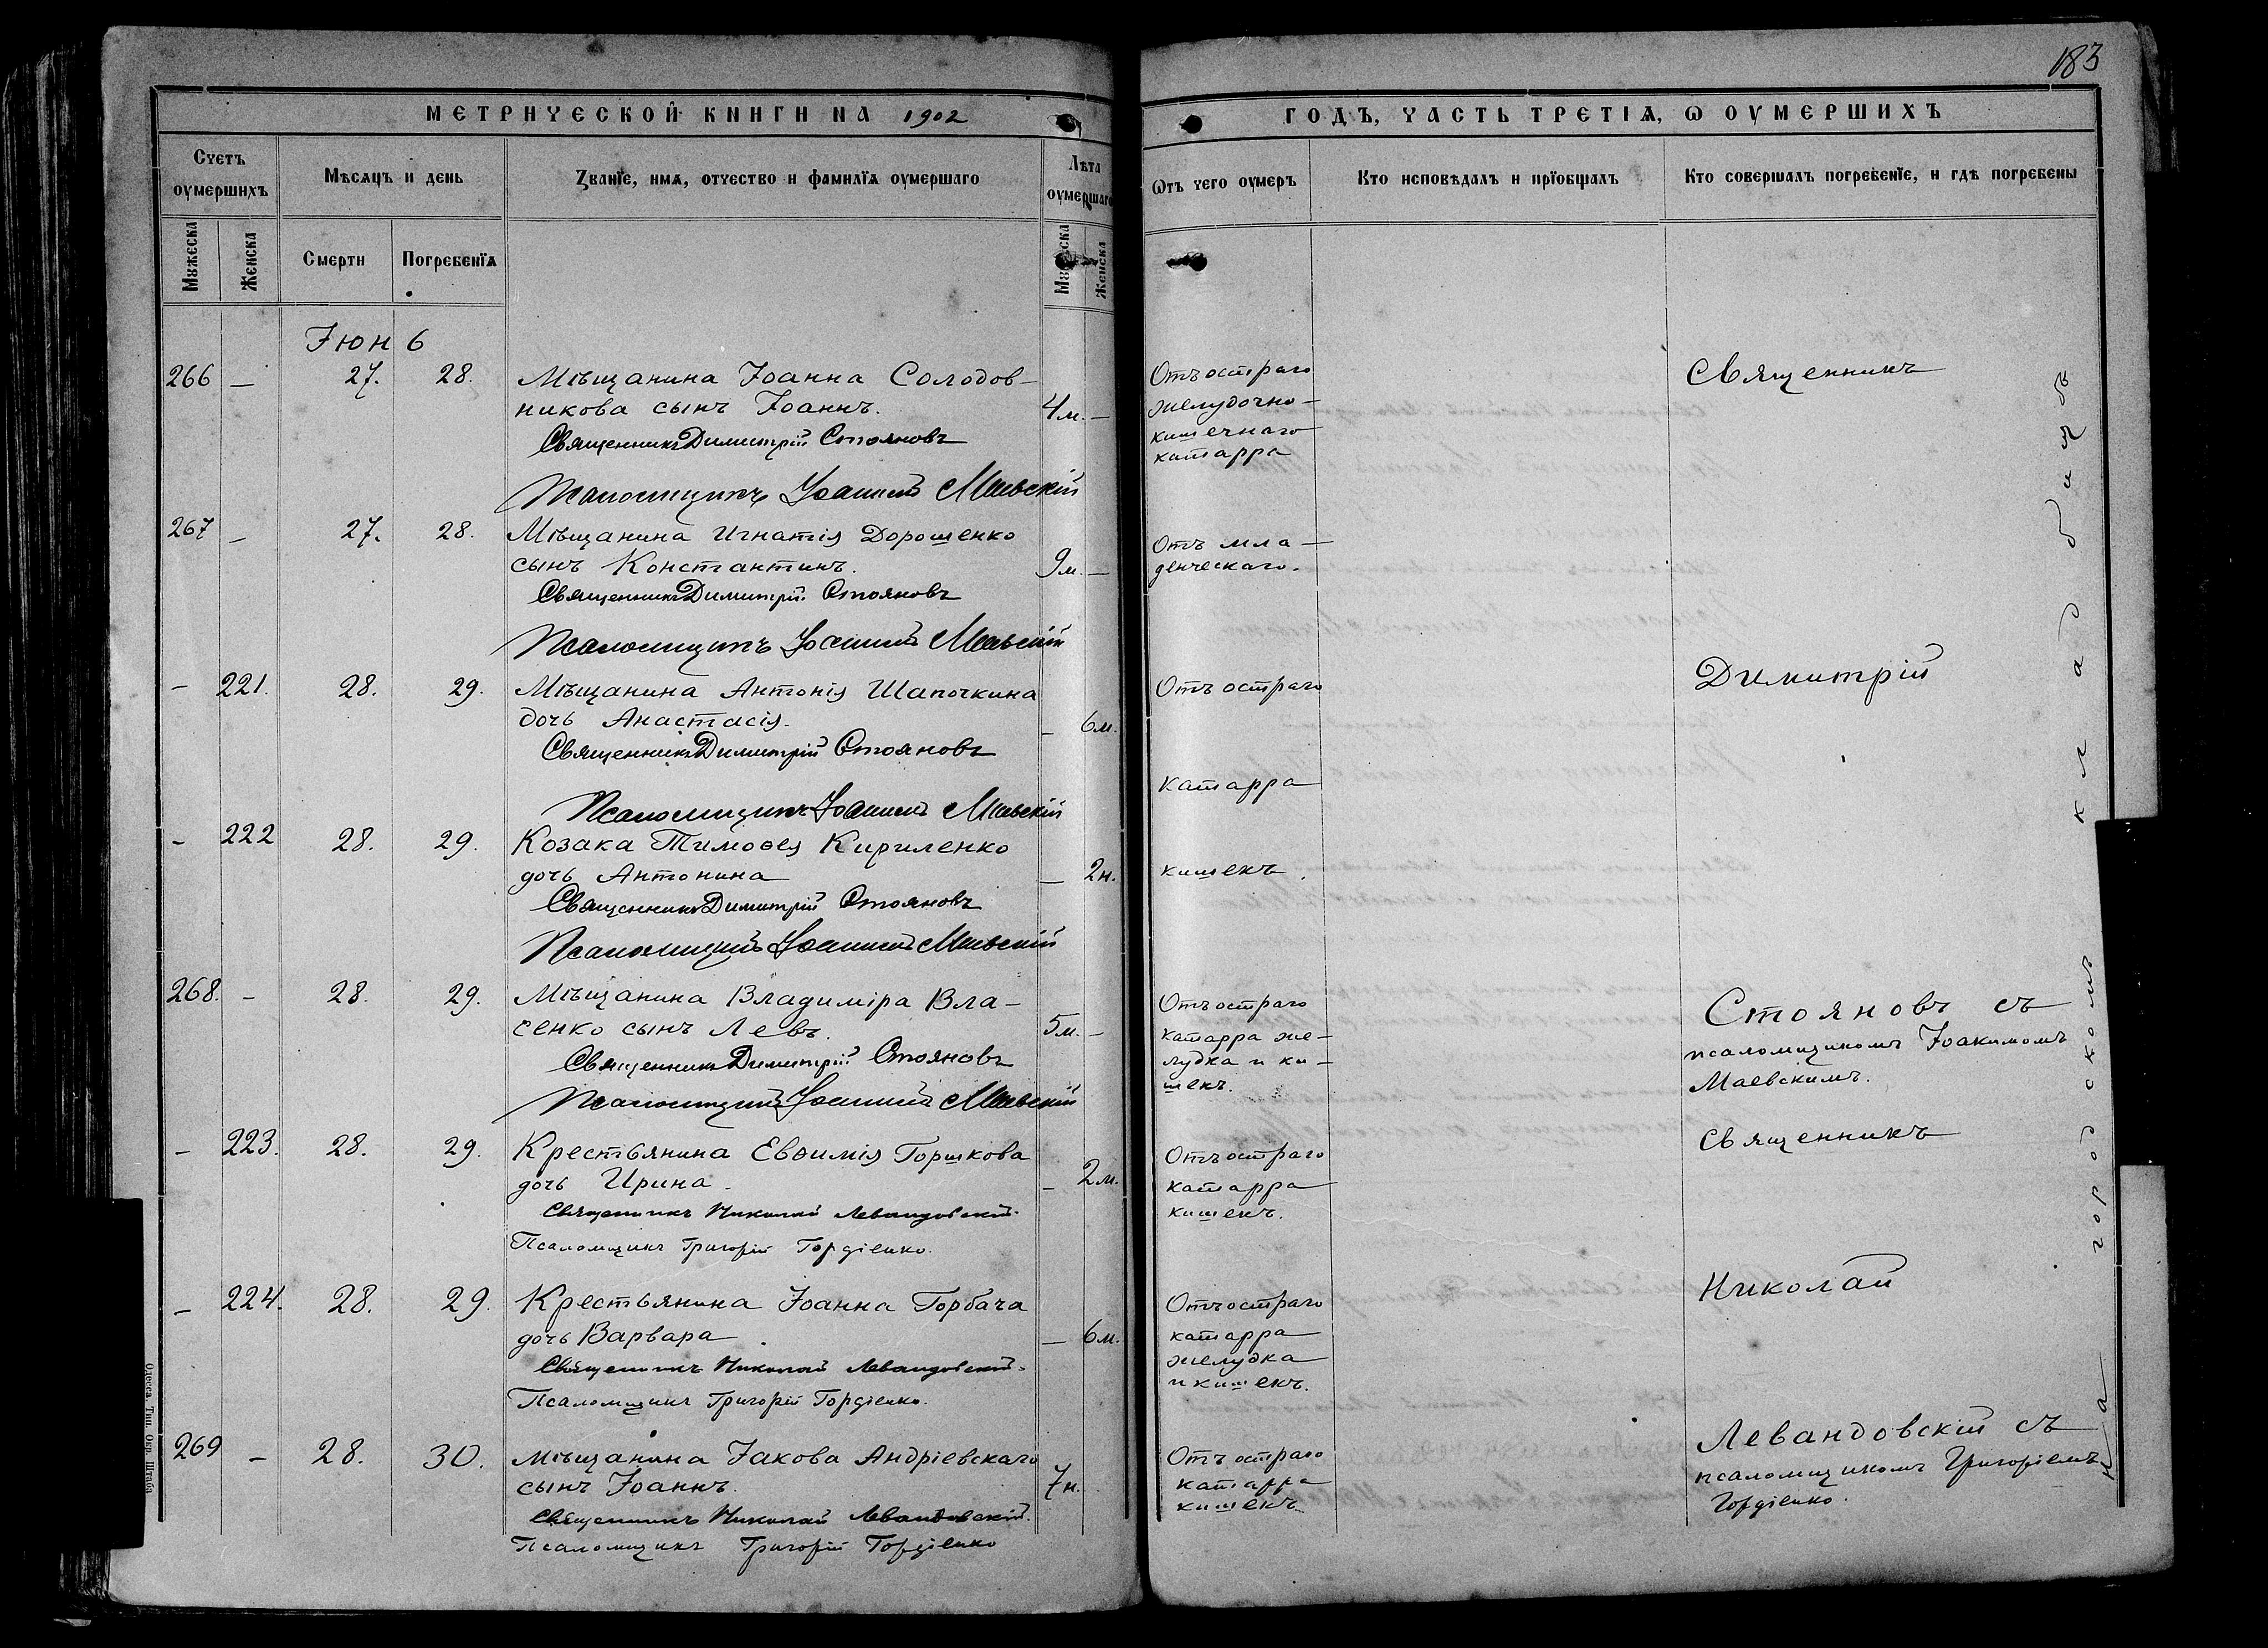 183
МЕТРИЧЕСКОЙ КНИГИ НА 1902
ГОДЪ, ЧАСТЬ ТРЕТІѦ, Ѡ ОУМЕРШИХЪ
Счетъ оумершихъ
Мѣсѧцъ и день
Званїе, имѧ, отчество и фамилїѧ оумершаго
Лѣта оумершаго
Ѿъ чего оумеръ
Кто исповѣдалъ и прїобщалъ
Кто совершалъ погребенїе, и гдѣ погребены
Мꙋжеска
Женска
Смерти
Погребенїѧ
Мꙋжеска
Женска
Іюнь
266 — 27. 28. Мѣщанина Іоанна Солодов-
никова сынъ Іоаннъ. 4м. —
Священникъ Димитрій Стояновъ
Псаломщикъ Іоакимъ Маевскій
Отъ остраго
желудочно-
кишечнаго
катарра
Священникъ
267 — 27. 28. Мѣщанина Игнатія Дорошенко
сынъ Константинъ. 9м. —
Священникъ Димитрій Стояновъ
Псаломщикъ Іоакимъ Маевскій
Отъ мла-
денческаго.
— 221. 28. 29. Мѣщанина Антонія Шапочкина
дочь Анастасія. — 6м.
Священникъ Димитрій Стояновъ
Псаломщикъ Іоакимъ Маевскій
Отъ остраго
катарра
Димитрій
— 222 28. 29. Козака Тимоѳея Кириленко
дочь Антонина — 2н.
Священникъ Димитрій Стояновъ
Псаломщикъ Іоакимъ Маевскій
кишекъ.
268. — 28. 29. Мѣщанина Владиміра Вла-
сенко сынъ Левъ. 5м. —
Священникъ Димитрій Стояновъ
Псаломщикъ Іоакимъ Маевскій
Отъ остраго
катарра же-
лудка и ки-
шекъ.
Стояновъ съ
псаломщикомъ Іоакимомъ
Маевскимъ.
— 223. 28. 29. Крестьянина Евѳимія Горшкова
дочь Ирина. — 2м.
Священникъ Николай Левандовскій.
Псаломщикъ Григорій Гордіенко.
Отъ остраго
катарра
кишекъ.
Священникъ
— 224. 28. 29. Крестьянина Іоанна Горбача
дочь Варвара. — 6м.
Священникъ Николай Левандовскій.
Псаломщикъ Григорій Гордіенко.
Отъ остраго
катарра
желудка
и кишекъ.
Николай
269 — 28. 30. Мѣщанина Іакова Андріевскаго
сынъ Іоаннъ. 7н.
Священникъ Николай Левандовскій.
Псаломщикъ Григорій Гордіенко
Отъ остраго
катарра
кишекъ.
Левандовскій съ
псаломщикомъ Григоріемъ
Гордіенко.
на городскомъ кладбищѣ
Одесса. Тип. Окр. Штаба